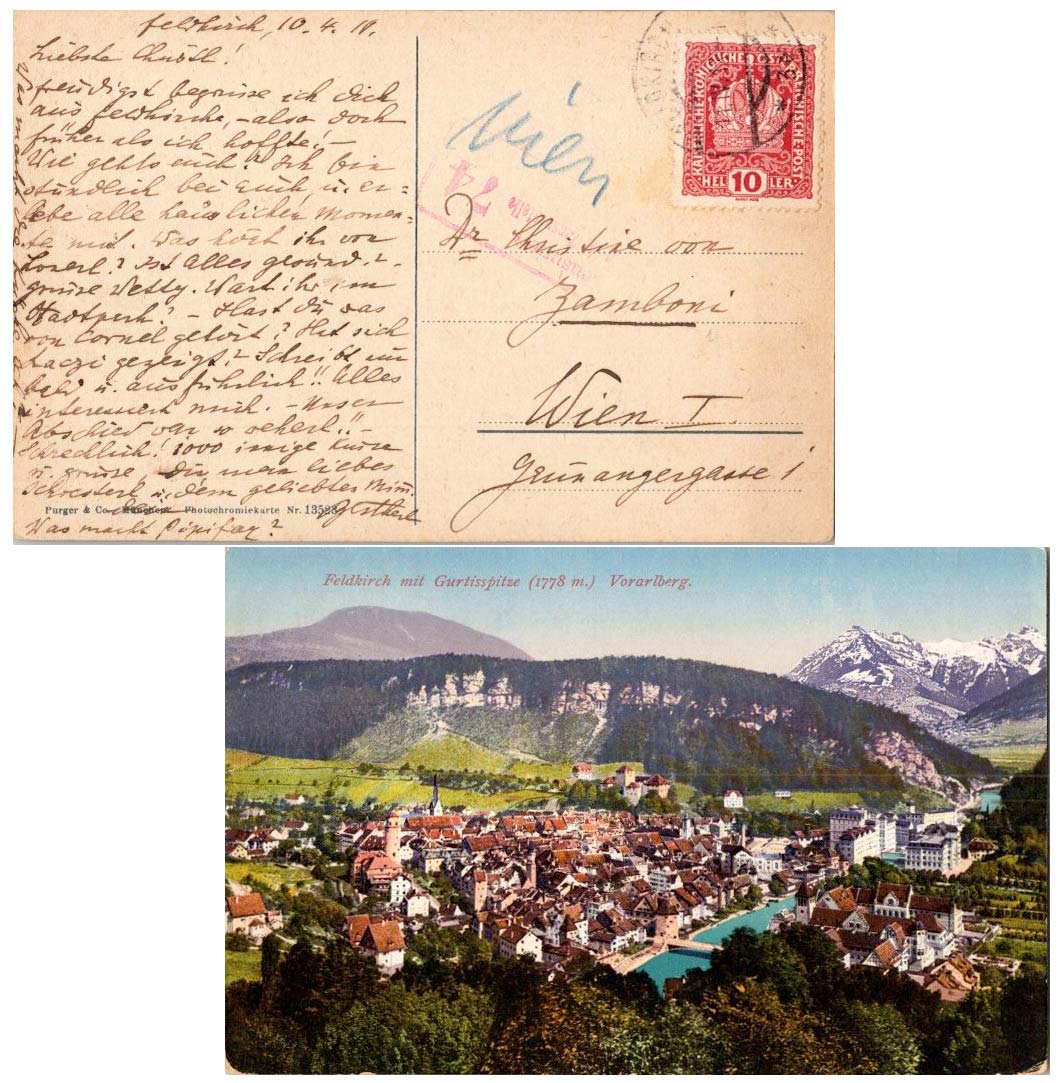 Feldkirch, 10. 4. 18.
Liebste Christl!
freudigst begrüsse ich Dich
aus Feldkirch, – also doch
früher als ich hoffte! –
Wie gehts euch? Ich bin
stündlich bei euch u. er=
lebe alle häuslichen Momen=
te mit. Was hört ihr von
? Ist Alles gesund? –
grüsse Netty. Wart ihr im
Stadtpark? – Hast Du was
von Cornel gehört? Hat sich
Laczi gezeigt? Schreibt nur
bald u. ausführlich!! Alles
interessiert mich. – Unser
Abschied war so !! –
Schrecklich! 1000 innige Küsse
u. grüsse Dir mein liebes
Schwesterl u. dem geliebten
Purger & Co. München. Photochromiekarte Nr. 13523
Was macht ?
Wien
KAISERLICHE KÖNIGLICHE ÖSTERREICHISCHE POST
HELLER
10
Dr Christine von
Zamboni
Wien I.
Grünangergasse 1
Feldkirch mit Gurtisspitze (1778 m.) Vorarlberg.